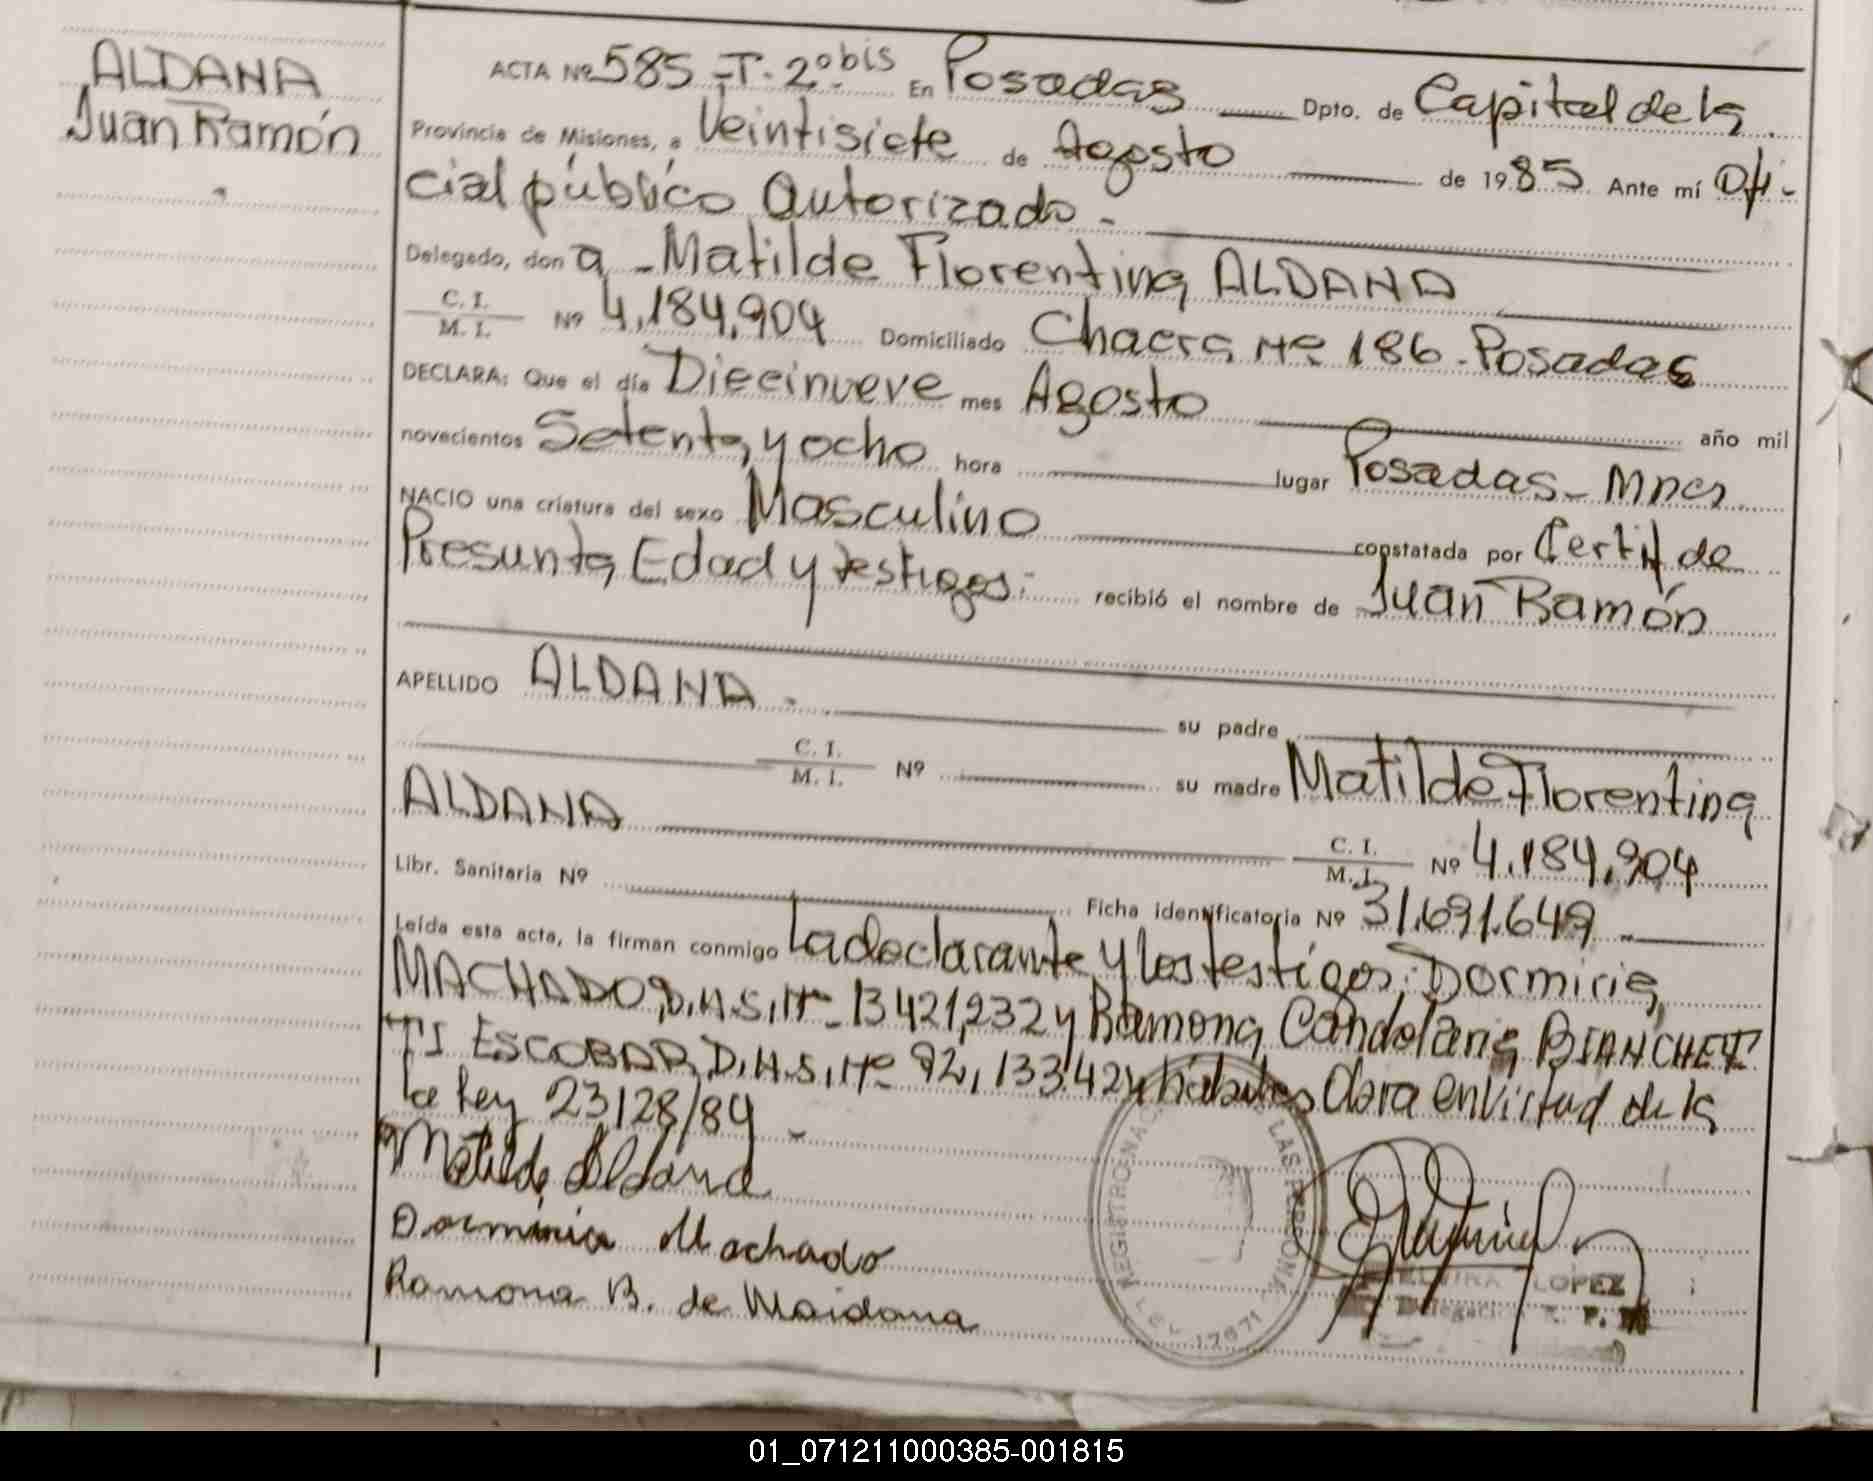 ALDANA
Juan Ramón
ACTA Nº 585 -T. 2º bis En Posadas Dpto. de Capital de la
Provincia de Misiones, a Veintisiete de Agosto de 1985 Ante mí Ofi-
cial público Autorizado.-
Delegado, don a - Matilde Florentina ALDANA
C. I.
M. I. Nº 4.184.904 Domiciliado Chacra Nº 186 - Posadas
DECLARA: Que el día Diecinueve mes Agosto año mil
novecientos Setenta y ocho hora lugar Posadas - Mnes.
NACIO una criatura del sexo Masculino constatada por Certif. de
Presunta Edad y testigos: recibió el nombre de Juan Ramón
APELLIDO ALDANA. su padre
C. I.
M. I. Nº su madre Matilde Florentina
ALDANA C. I.
M. I. Nº 4.184.904
Libr. Sanitaria Nº Ficha identificatoria Nº 31.691.649
Leída esta acta, la firman conmigo La declarante y los testigos: Dormiria
MACHADO, D.N.S, Nº 13421,232 y Ramona Candelaria BIANCHET
TI ESCOBAR, D.N.S, Nº 92,133424 hábiles en virtud de la
ley 23128/84
Matilde Aldana
Dorminia Machado
Ramona B. de Maidana
REGISTRO LAS PERSONAS
LEY 17671
ELVIRA LOPEZ
01_071211000385-001815